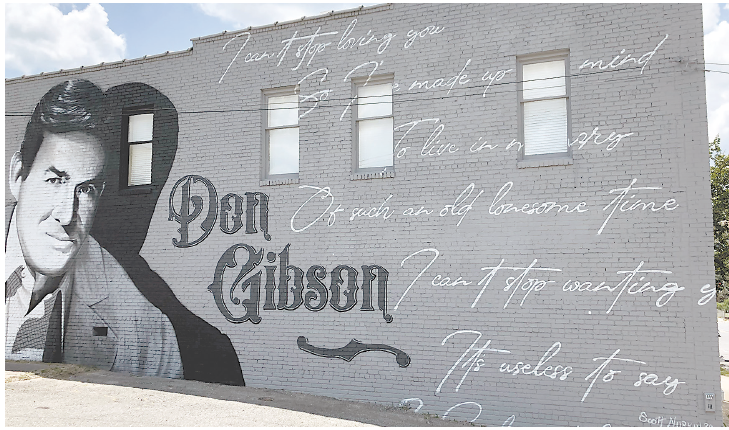 I can't stop loving you
So I've made up mind
To live in
Of such an old lonesome time
I can't stop wanting
It's useless to say
Don
Gibson
Scott